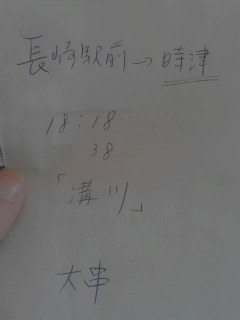 長崎駅前→時津
18:18
38
「溝川」
大串